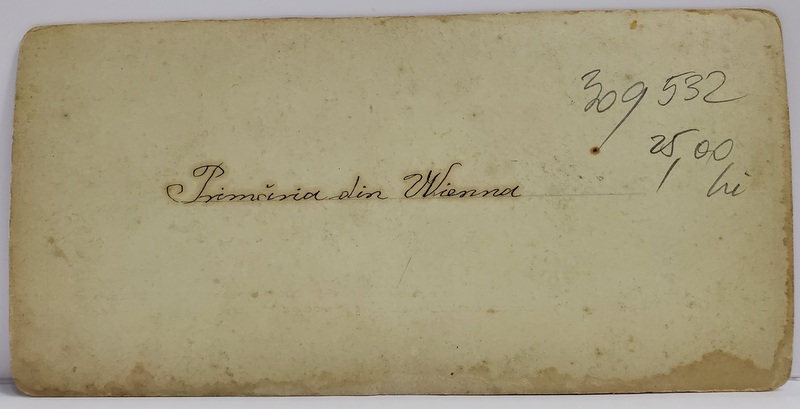 309 532
25,00
lei
Primăria din Wienna